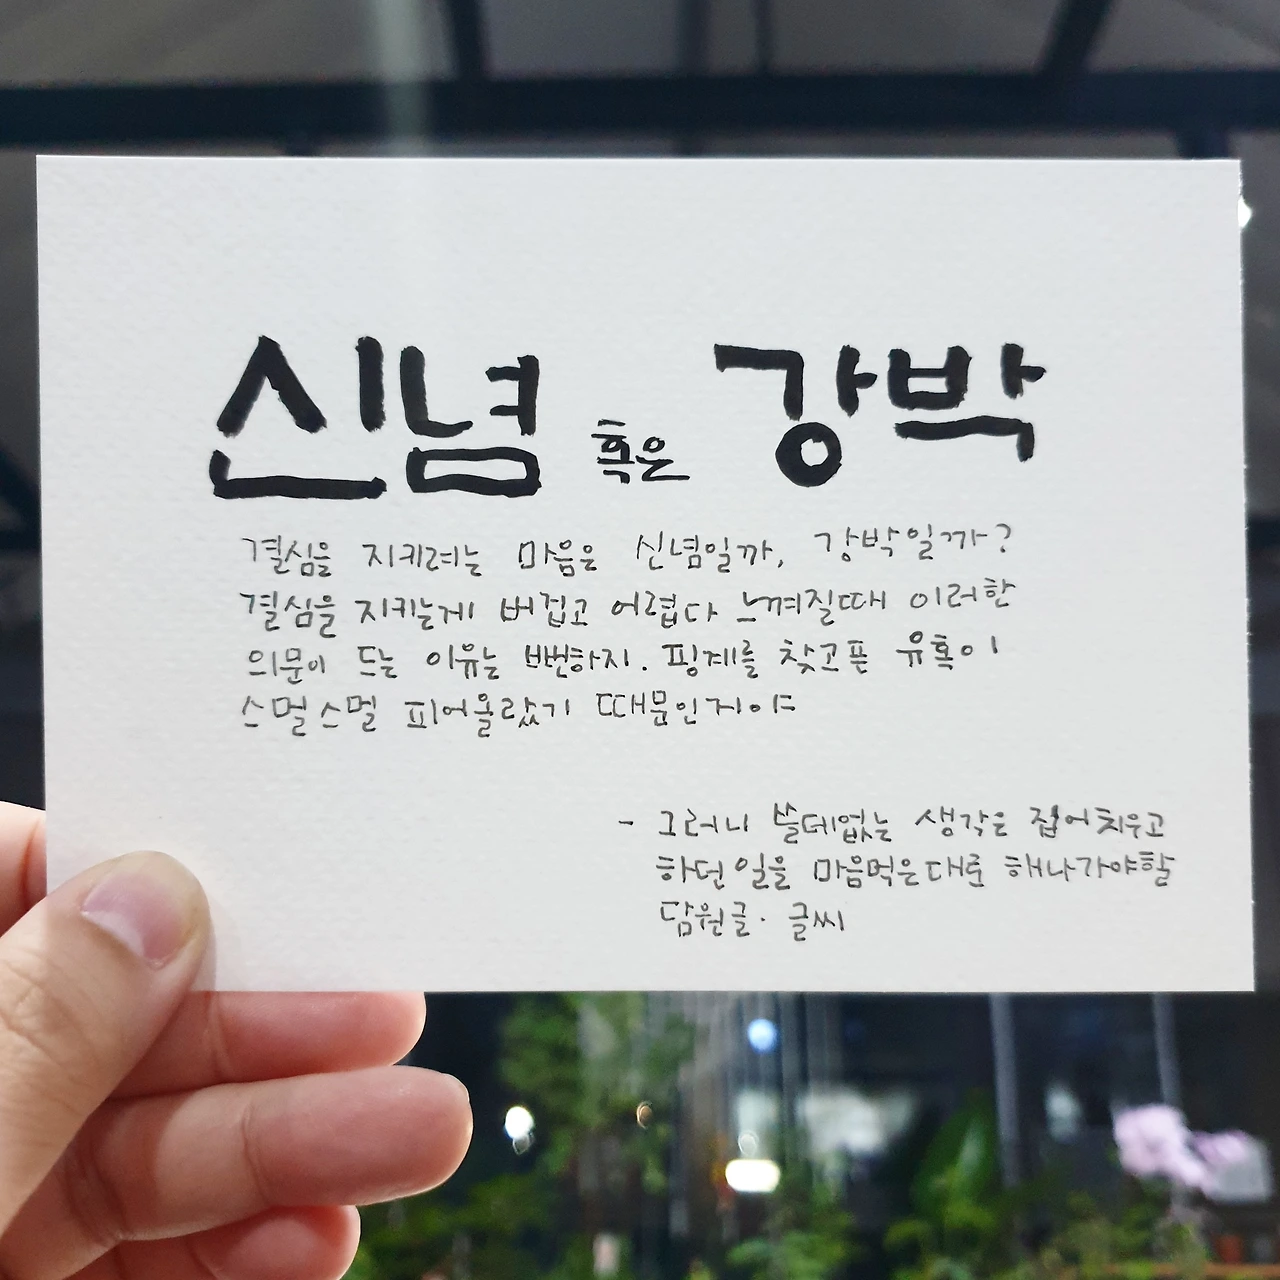 신념 혹은 강박
결심을 지키려는 마음은 신념일까, 강박일까?
결심을 지키는게 버겁고 어렵다 느껴질때 이러한
의문이 드는 이유는 뻔하지. 핑계를 찾고픈 유혹이
스멀스멀 피어올랐기 때문인거야
- 그러니 쓸데없는 생각은 접어치우고
하던 일을 마음먹은대로 해나가야할
담원글. 글씨